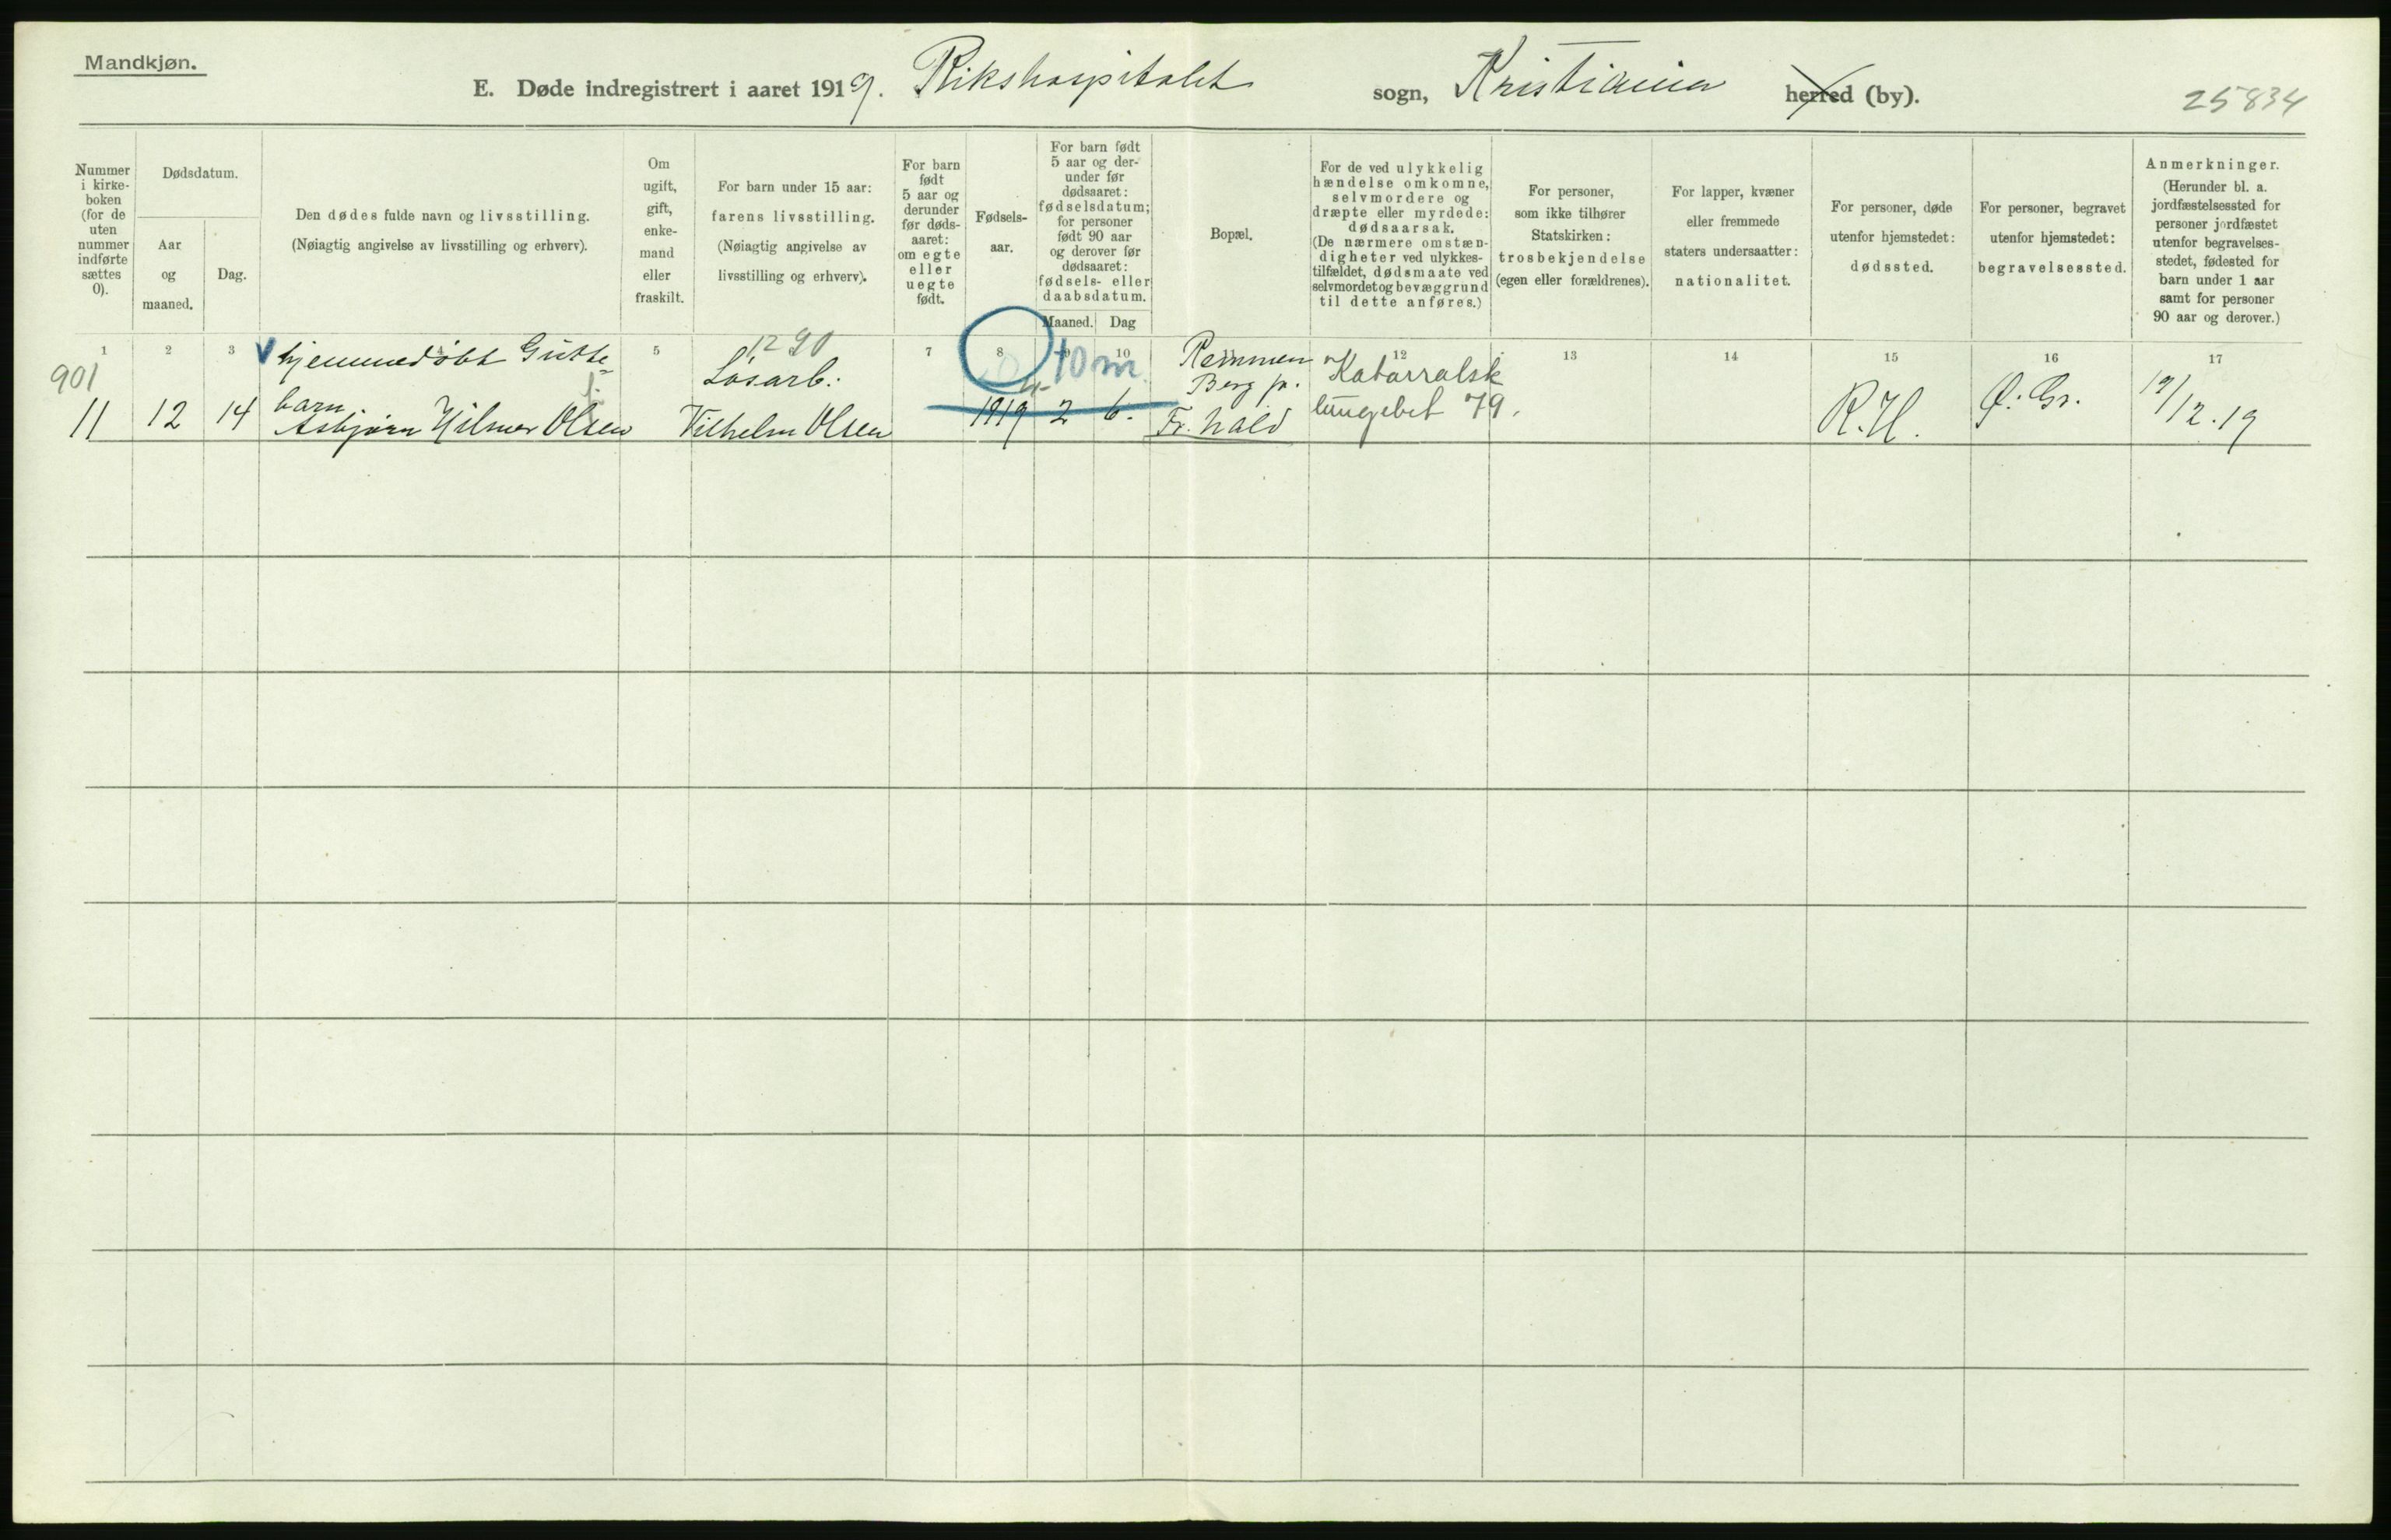 Mandkjøn.
E. Døde indregistrert i aaret 1919. Rikshospitalet sogn, Kristiania herred (by).
25834
Nummer i kirkeboken (for de uten nummer indførte sættes 0).
Dødsdatum.
Aar og maaned.
Dag.
Den dødes fulde navn og livsstilling.
(Nøiagtig angivelse av livsstilling og erhverv).
Om ugift, gift, enkemand eller fraskilt.
For barn under 15 aar:
farens livsstilling.
(Nøiagtig angivelse av
livsstilling og erhverv).
For barn født 5 aar og derunder før dødsaaret: om egte eller uegte født.
Fødselsaar.
For barn født 5 aar og derunder før dødsaaret: fødselsdatum; for personer født 90 aar og derover før dødsaaret: fødsels- eller daabsdatum.
Maaned. Dag
Bopæl.
For de ved ulykkelig hændelse omkomne, selvmordere og dræpte eller myrdede: dødsaarsak.
(De nærmere omstændigheter ved ulykkestilfældet, dødsmaate ved selvmordet og bevæggrund til dette anføres.)
For personer, som ikke tilhører Statskirken: trosbekjendelse (egen eller forældrenes).
For lapper, kvæner eller fremmede staters undersaatter: nationalitet.
For personer, døde utenfor hjemstedet: dødssted.
For personer, begravet utenfor hjemstedet: begravelsessted.
Anmerkninger.
(Herunder bl. a. jordfæstelsessted for personer jordfæstet utenfor begravelsesstedet, fødested for barn under 1 aar samt for personer 90 aar og derover.)
1 2 3 4 5 7 8 9 10 12 13 14 15 16 17
901
11 12 14
hjemmedøbt Gutte-
barn
Asbjørn Hilmer Olsen
1290
Løsarb.
Vilhelm Olsen
10 m
1919 2 6.
Remmen
Berg pr.
Fr. hald
Katarralsk
lungebet 79.
R.H.
Ø. Gr.
19/12.19